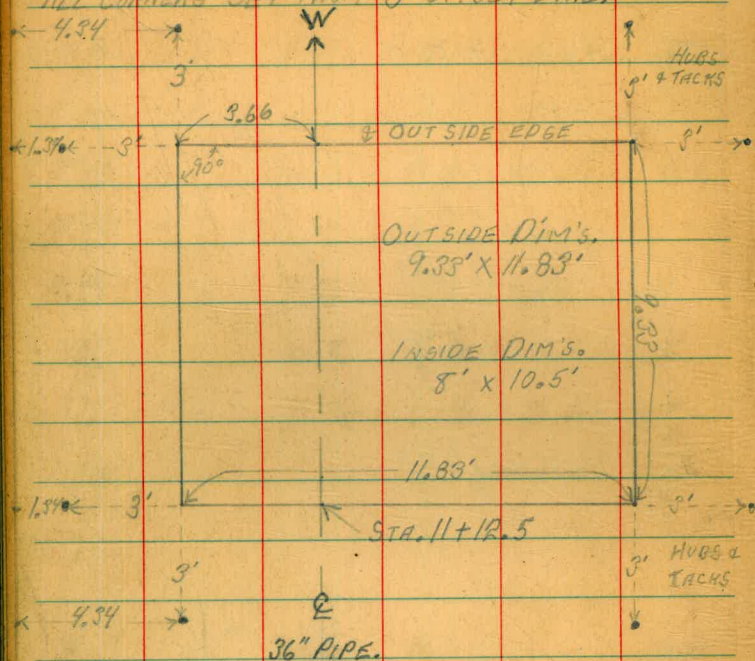 ALL CORNERS SET
W
4.34
3'
3'
HUBS
& TACKS
3.66
℄ OUTSIDE EDGE
1.34
3'
3'
90°
OUTSIDE DIM'S.
9.33' X 11.83'
9.33
INSIDE DIM'S.
8' X 10.5'
11.83'
1.34
3'
3'
STA. 11+12.5
3'
3'
HUBS &
TACKS
4.34
℄
36" PIPE.